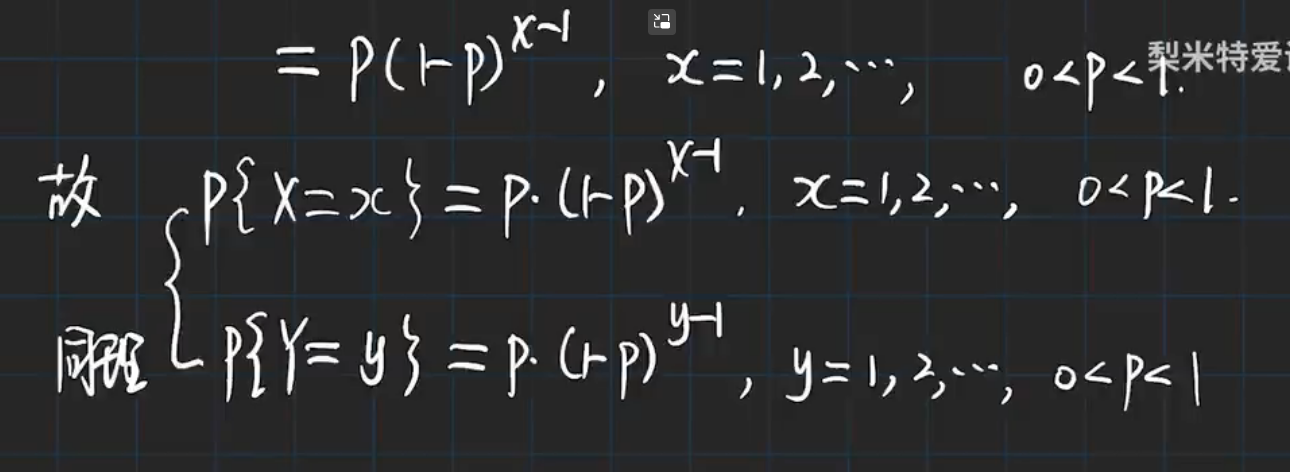 = p(1-p)^{x-1}, x=1,2,⋯, 0<p<1.
梨米特爱
故 P{X=x} = p·(1-p)^{x-1}, x=1,2,⋯, 0<p<1.
同理 P{Y=y} = p·(1-p)^{y-1}, y=1,2,⋯, 0<p<1